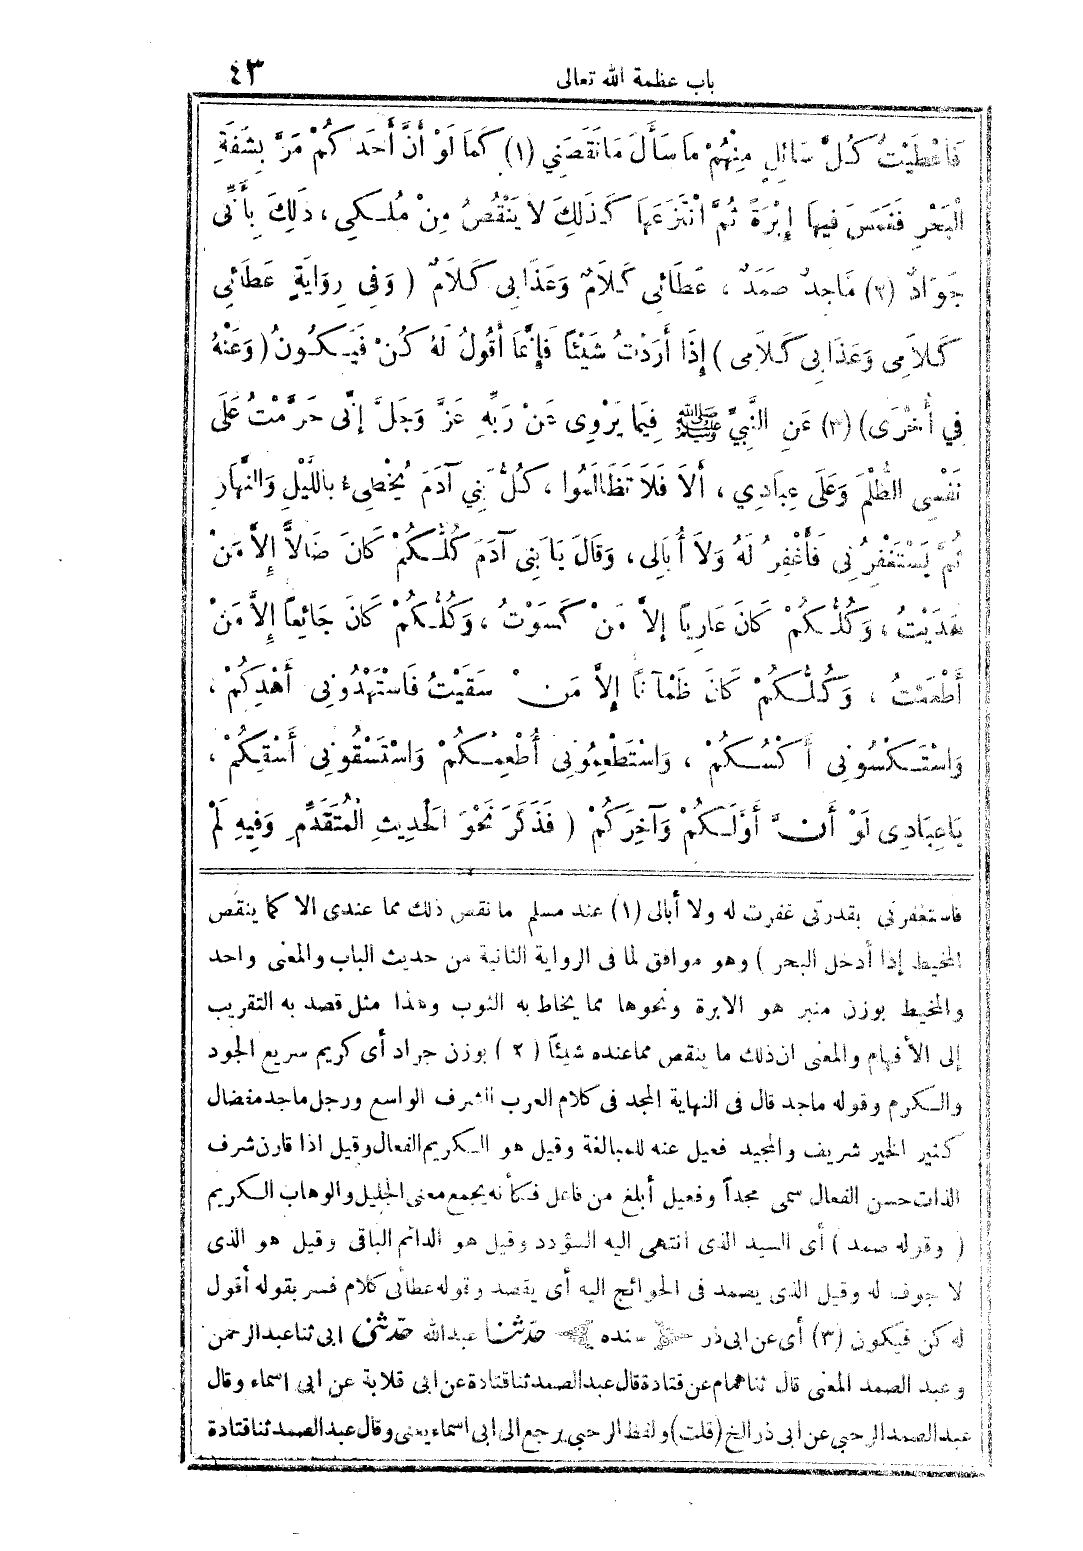 باب عظمة الله تعالى
٤٣
فَأَعْطَيْتُ كُلَّ سَائِلٍ مِنْهُمْ مَا سَأَلَ مَا نَقَصَنِي (١) كَمَا لَوْ أَنَّ أَحَدَكُمْ مَرَّ بِشَفَةِ
الْبَحْرِ فَغَمَسَ فِيهَا إِبْرَةً ثُمَّ انْتَزَعَهَا كَذَلِكَ لاَ يَنْقُصُ مِنْ مُلْكِي ، ذَلِكَ بِأَنِّى
جَوَادٌ (٢) مَاجِدٌ صَمَدٌ ، عَطَائِى كَلاَمٌ وَعَذَابِى كَلاَمٌ ( وَفِى رِوَايَةٍ عَطَائِى
كَلاَمِى وَعَذَابِى كَلاَمِى ) إِذَا أَرَدْتُ شَيْئًا فَإِنَّمَا أَقُولُ لَهُ كُنْ فَيَكُونُ ( وَعَنْهُ
فِي أُخْرَى) (٣) عَنِ النَّبِيِّ ﷺ فِيمَا يَرْوِى عَنْ رَبِّهِ عَزَّ وَجَلَّ إِنِّى حَرَّمْتُ عَلَى
نَفْسِى الظُّلْمَ وَعَلَى عِبَادِي ، أَلاَ فَلاَ تَظَالَمُوا ، كُلُّ بَنِي آدَمَ يُخْطِىءُ بِاللَّيْلِ وَالنَّهَارِ
ثُمَّ يَسْتَغْفِرُنِى فَأَغْفِرُ لَهُ وَلاَ أُبَالِى ، وَقَالَ يَا بَنِى آدَمَ كُلُّكُمْ كَانَ ضَالاًّ إِلاَّ مَنْ
هَدَيْتُ ، وَكُلُّكُمْ كَانَ عَارِيًا إِلاَّ مَنْ كَسَوْتُ ، وَكُلُّكُمْ كَانَ جَائِعًا إِلاَّ مَنْ
أَطْعَمْتُ ، وَكُلُّكُمْ كَانَ ظَمْآنًا إِلاَّ مَنْ سَقَيْتُ فَاسْتَهْدُونِى أَهْدِكُمْ ،
وَاسْتَكْسُونِى أَكْسُكُمْ ، وَاسْتَطْعِمُونِى أُطْعِمْكُمْ وَاسْتَسْقُونِى أَسْقِكُمْ ،
يَاعِبَادِى لَوْ أَنَّ أَوَّلَكُمْ وَآخِرَكُمْ ( فَذَكَرَ نَحْوَ الْحَدِيثِ الْمُتَقَدِّمِ وَفِيهِ لَمْ
فاستغفرنى بقدرتى غفرت له ولا أبالى (١) عند مسلم ما نقص ذلك مما عندى الا كما ينقص
المخيط إذا أدخل البحر ) وهو موافق لما فى الرواية الثانية من حديث الباب والمعنى واحد
والمخيط بوزن منبر هو الابرة ونحوها مما يخاط به الثوب وهذا مثل قصد به التقريب
إلى الأفهام والمعنى ان ذلك ما ينقص مما عنده شيئاً (٢) بوزن جراد أى كريم سريع الجود
والكرم وقوله ماجد قال فى النهاية المجد فى كلام العرب الشرف الواسع ورجل ماجد مفضال
كثير الخير شريف والمجيد فعيل عنه للمبالغة وقيل هو الكريم الفعال وقيل اذا قارن شرف
الذات حسن الفعال سمى مجداً وفعيل أبلغ من فاعل فكأنه يجمع معنى الجليل والوهاب الكريم
( وقوله صمد ) أى السيد الذى انتهى اليه السؤدد وقيل هو الدائم الباقى وقيل هو الذى
لا جوف له وقيل الذى يصمد فى الحوائج اليه أى يقصد وقوله عطائى كلام فسر بقوله أقول
له كن فيكون (٣) أى عن ابى ذر سنده حدثنا عبدالله حدثنى ابى ثنا عبدالرحمن
وعبد الصمد المعنى قال ثنا همام عن قتادة قال عبدالصمد ثنا قتادة عن ابى قلابة عن ابى اسماء وقال
عبدالصمد الرحبى عن ابى ذر الخ (قلت) ولفظ الرحبى يرجع الى ابى اسماء يعنى وقال عبدالصمد ثنا قتادة